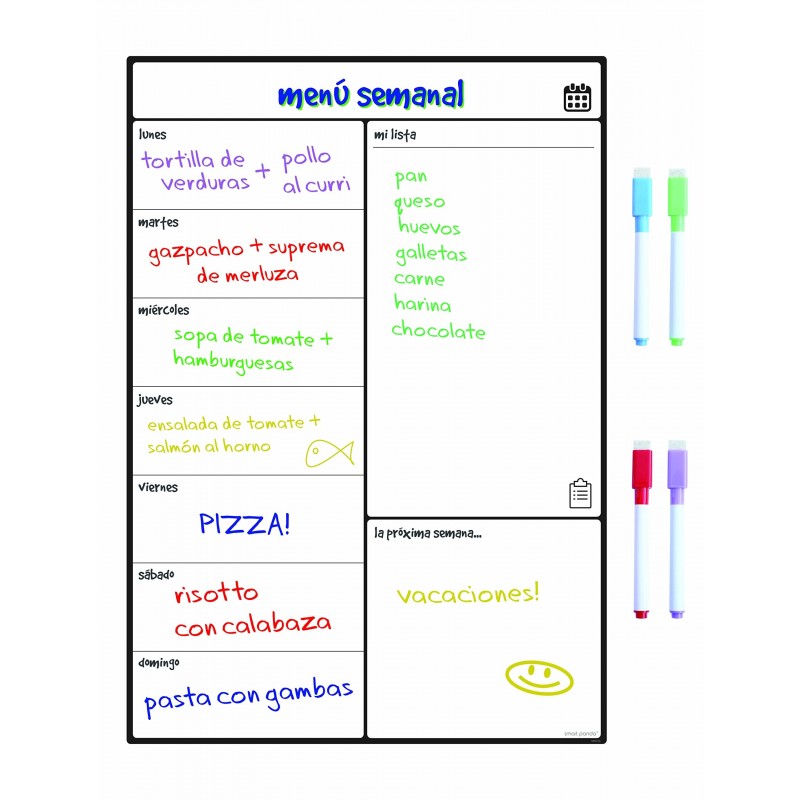 menú semanal
lunes
tortilla de verduras + pollo al curri
martes
gazpacho + suprema
de merluza
miércoles
sopa de tomate +
hamburguesas
jueves
ensalada de tomate +
salmón al horno
viernes
PIZZA!
sábado
risotto
con calabaza
domingo
pasta con gambas
mi lista
pan
queso
huevos
galletas
carne
harina
chocolate
la próxima semana...
vacaciones!
smart panda